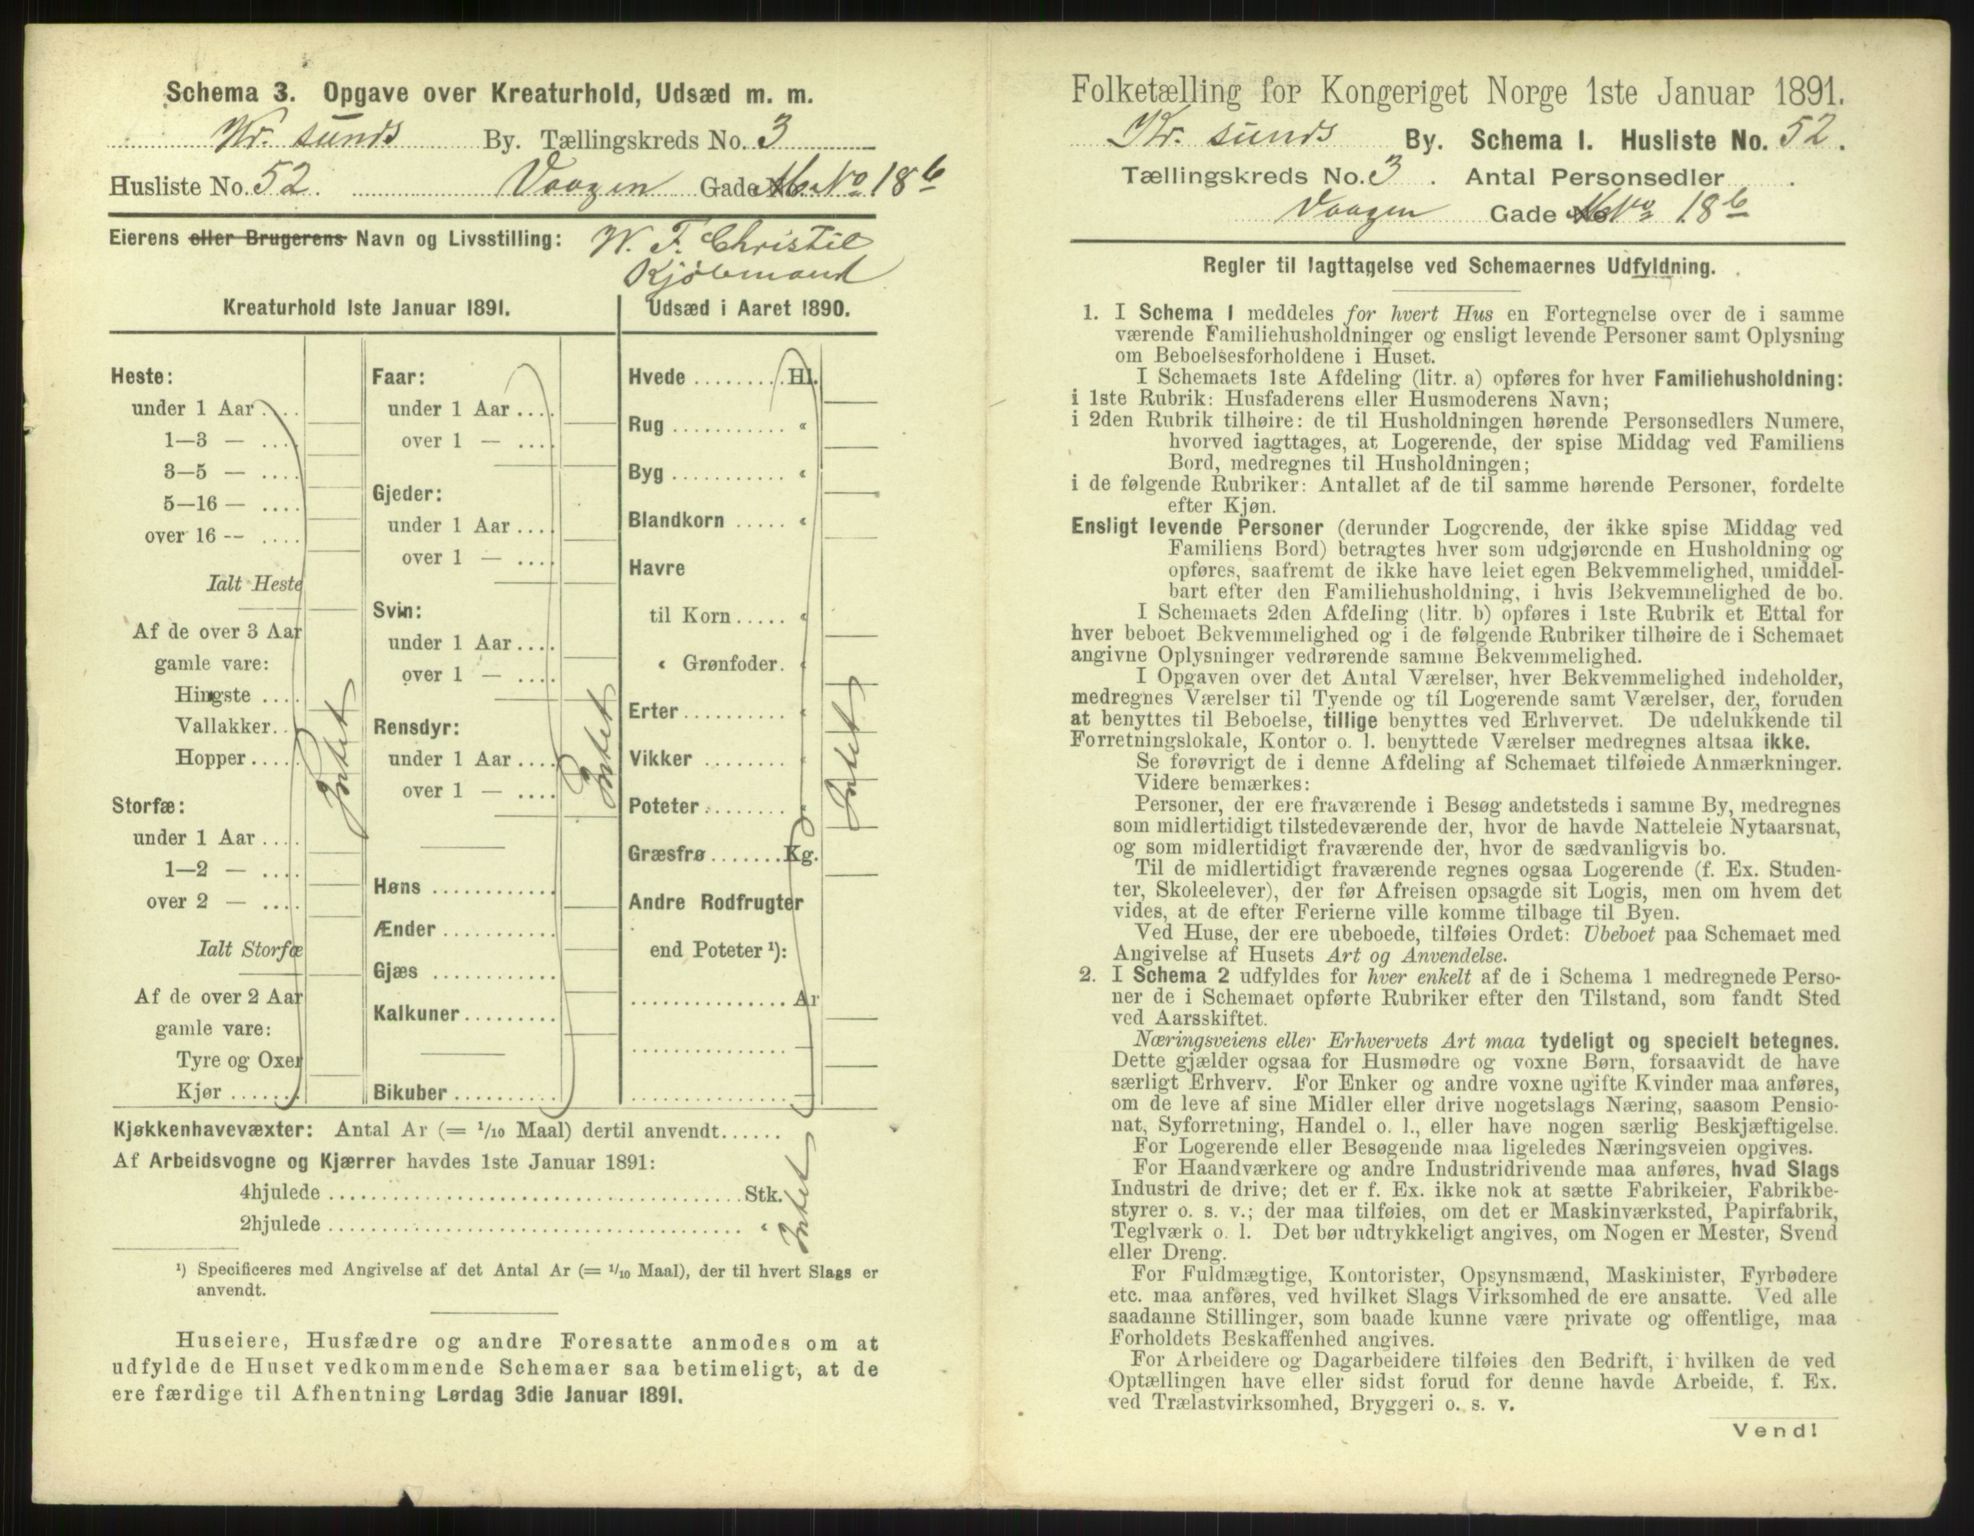 Schema 3. Opgave over Kreaturhold, Udsæd m. m.
Kr. sunds By. Tællingskreds No. 3
Husliste No. 52. Vaagen Gade No 18b
Eierens eller Brugerens Navn og Livsstilling: W. F. Christie
Kjøbmand
Kreaturhold 1ste Januar 1891.
Heste:
under 1 Aar....
1—3 — ....
3—5 — ....
5—16 — ....
over 16 -- ....
Ialt Heste
Af de over 3 Aar
gamle vare:
Hingste ....
Vallakker....
Hopper.....
Storfæ:
under 1 Aar ....
1—2 — ....
over 2 — ....
Ialt Storfæ
Af de over 2 Aar
gamle vare:
Tyre og Oxer
Kjør .......
Intet
Faar:
under 1 Aar....
over 1 — ....
Gjeder:
under 1 Aar....
over 1 — ....
Svin:
under 1 Aar....
over 1 — ....
Rensdyr:
under 1 Aar....
over 1 — ....
Høns ............
Ænder ...........
Gjæs ............
Kalkuner.........
Bikuber ..........
Intet
Udsæd i Aaret 1890.
Hvede ........ Hl.
Rug ........... «
Byg ........... «
Blandkorn ..... «
Havre
til Korn ..... «
« Grønfoder. «
Erter .......... «
Vikker ........ «
Poteter ........ «
Græsfrø ....... Kg.
Andre Rodfrugter
end Poteter ¹):
............... Ar
............... —
............... —
Intet
Kjøkkenhavevæxter: Antal Ar (= 1/10 Maal) dertil anvendt......
Af Arbeidsvogne og Kjærrer havdes 1ste Januar 1891:
4hjulede ........................................ Stk.
2hjulede ........................................ «
Intet
¹) Specificeres med Angivelse af det Antal Ar (= 1/10 Maal), der til hvert Slags er
anvendt.
Huseiere, Husfædre og andre Foresatte anmodes om at
udfylde de Huset vedkommende Schemaer saa betimeligt, at de
ere færdige til Afhentning Lørdag 3die Januar 1891.
Folketælling for Kongeriget Norge 1ste Januar 1891.
Kr. sunds By. Schema 1. Husliste No. 52.
Tællingskreds No. 3. Antal Personsedler .
Vaagen Gade No 18b
Regler til Iagttagelse ved Schemaernes Udfyldning.
1. I Schema 1 meddeles for hvert Hus en Fortegnelse over de i samme
værende Familiehusholdninger og ensligt levende Personer samt Oplysning
om Beboelsesforholdene i Huset.
I Schemaets 1ste Afdeling (litr. a) opføres for hver Familiehusholdning:
i 1ste Rubrik: Husfaderens eller Husmoderens Navn;
i 2den Rubrik tilhøire: de til Husholdningen hørende Personsedlers Numere,
hvorved iagttages, at Logerende, der spise Middag ved Familiens
Bord, medregnes til Husholdningen;
i de følgende Rubriker: Antallet af de til samme hørende Personer, fordelte
efter Kjøn.
Ensligt levende Personer (derunder Logerende, der ikke spise Middag ved
Familiens Bord) betragtes hver som udgjørende en Husholdning og
opføres, saafremt de ikke have leiet egen Bekvemmelighed, umiddel-
bart efter den Familiehusholdning, i hvis Bekvemmelighed de bo.
I Schemaets 2den Afdeling (litr. b) opføres i 1ste Rubrik et Ettal for
hver beboet Bekvemmelighed og i de følgende Rubriker tilhøire de i Schemaet
angivne Oplysninger vedrørende samme Bekvemmelighed.
I Opgaven over det Antal Værelser, hver Bekvemmelighed indeholder,
medregnes Værelser til Tyende og til Logerende samt Værelser, der, foruden
at benyttes til Beboelse, tillige benyttes ved Erhvervet. De udelukkende til
Forretningslokale, Kontor o. l. benyttede Værelser medregnes altsaa ikke.
Se forøvrigt de i denne Afdeling af Schemaet tilføiede Anmærkninger.
Videre bemærkes:
Personer, der ere fraværende i Besøg andetsteds i samme By, medregnes
som midlertidigt tilstedeværende der, hvor de havde Natteleie Nytaarsnat,
og som midlertidigt fraværende der, hvor de sædvanligvis bo.
Til de midlertidigt fraværende regnes ogsaa Logerende (f. Ex. Studen-
ter, Skoleelever), der før Afreisen opsagde sit Logis, men om hvem det
vides, at de efter Ferierne ville komme tilbage til Byen.
Ved Huse, der ere ubeboede, tilføies Ordet: Ubeboet paa Schemaet med
Angivelse af Husets Art og Anvendelse.
2. I Schema 2 udfyldes for hver enkelt af de i Schema 1 medregnede Perso-
ner de i Schemaet opførte Rubriker efter den Tilstand, som fandt Sted
ved Aarsskiftet.
Næringsveiens eller Erhvervets Art maa tydeligt og specielt betegnes.
Dette gjælder ogsaa for Husmødre og voxne Børn, forsaavidt de have
særligt Erhverv. For Enker og andre voxne ugifte Kvinder maa anføres,
om de leve af sine Midler eller drive nogetslags Næring, saasom Pensio-
nat, Syforretning, Handel o. l., eller have nogen særlig Beskjæftigelse.
For Logerende eller Besøgende maa ligeledes Næringsveien opgives.
For Haandværkere og andre Industridrivende maa anføres, hvad Slags
Industri de drive; det er f. Ex. ikke nok at sætte Fabrikeier, Fabrikbe-
styrer o. s. v.; der maa tilføies, om det er Maskinværksted, Papirfabrik,
Teglværk o. l. Det bør udtrykkeligt angives, om Nogen er Mester, Svend
eller Dreng.
For Fuldmægtige, Kontorister, Opsynsmænd, Maskinister, Fyrbødere
etc. maa anføres, ved hvilket Slags Virksomhed de ere ansatte. Ved alle
saadanne Stillinger, som baade kunne være private og offentlige, maa
Forholdets Beskaffenhed angives.
For Arbeidere og Dagarbeidere tilføies den Bedrift, i hvilken de ved
Optællingen have eller sidst forud for denne havde Arbeide, f. Ex.
ved Trælastvirksomhed, Bryggeri o. s. v.
Vend!